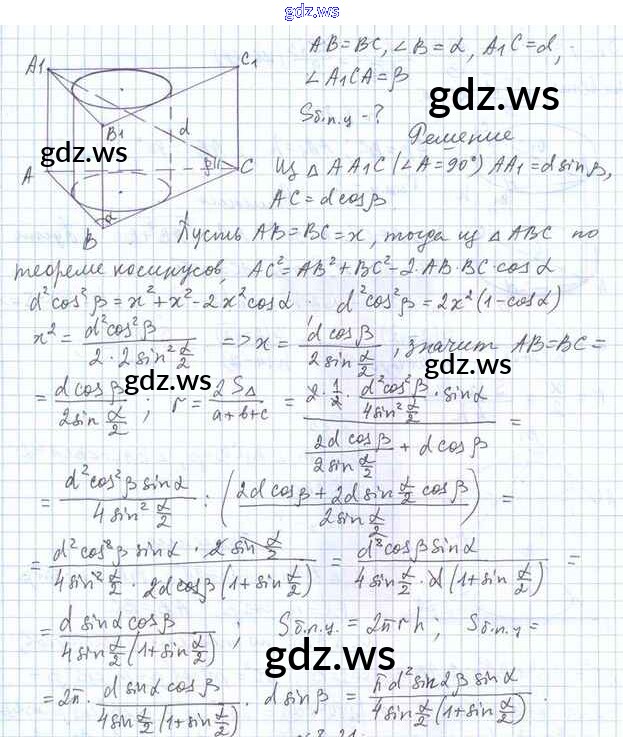 gdz.ws
AB=BC, ∠B=α, A₁C=d,
∠A₁CA=β
gdz.ws
Sб.п.ц - ?
Решение
A1
C1
B1
d
gdz.ws
β
A
C
α
B
Из △AA₁C (∠A=90°) AA₁=d sinβ,
AC=d cosβ
gdz.ws
Пусть AB=BC=x, тогда из △ABC по
теореме косинусов, AC²=AB²+BC²-2·AB·BC·cosα
d²cos²β=x²+x²-2x²cosα, d²cos²β=2x²(1-cosα)
x² = d²cos²β / (2·2sin² α/2) => x = d cosβ / (2 sin α/2), значит AB=BC=
gdz.ws
gdz.ws
= d cosβ / (2 sin α/2); r = 2S△ / (a+b+c) = (2·1/2 · d²cos²β / (4 sin² α/2) · sinα) / (2d cosβ / (2 sin α/2) + d cosβ) =
= d²cos²β sinα / (4 sin² α/2) : ((2d cosβ + 2d sin α/2 cosβ) / (2 sin α/2)) =
= d²cos²β sinα · 2 sin α/2 / (4 sin² α/2 · 2d cosβ (1+sin α/2)) = d²cosβ sinα / (4 sin α/2 · d (1+sin α/2)) =
= d sinα cosβ / (4 sin α/2 (1+sin α/2)); Sб.п.ц. = 2πrh; Sб.п.ц =
gdz.ws
= 2π · d sinα cosβ / (4 sin α/2 (1+sin α/2)) · d sinβ = πd² sin2β sinα / (4 sin α/2 (1+sin α/2)).
gdz.ws